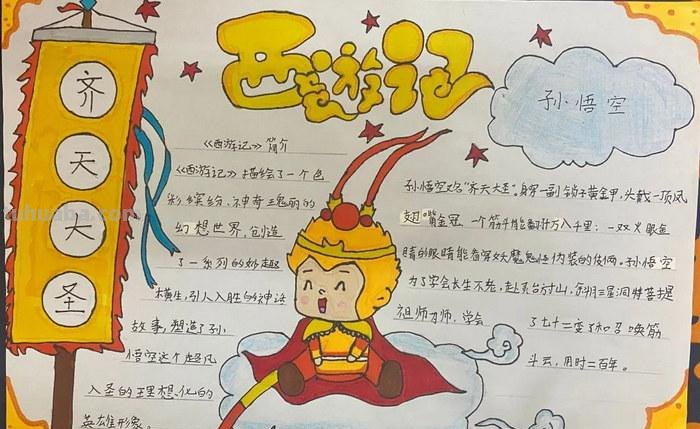 西游记
齐天大圣
孙悟空
《西游记》简介
《西游记》描绘了一个色
彩缤纷、神奇瑰丽的
幻想世界,创造
了一系列的妙趣
横生,引人入胜的神话
故事,塑造了孙
悟空这个超凡
入圣的理想化的
英雄形象。
孙悟空又名"齐天大圣"。身穿一副锁子黄金甲,头戴一顶凤
翅 金冠,一个筋斗能翻十万八千里;一双火眼金
睛的眼睛能看穿妖魔鬼怪伪装的伎俩。孙悟空
为了学会长生不老,赴灵台方寸山,斜月三星洞特菩提
祖师为师,学会
了七十二变了和召唤筋
斗云,用时二百年。